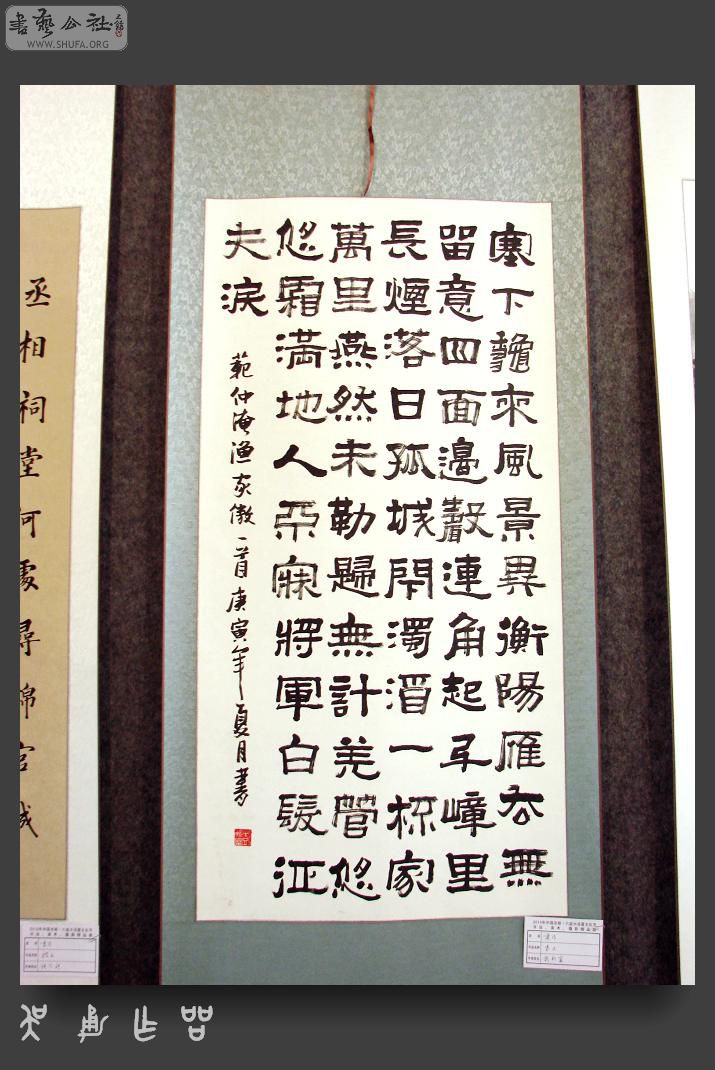 書藝公社
WWW.SHUFA.ORG
塞下龝來風景異衡陽雁去無
留意四面邊聲連角起千嶂里
長煙落日孤城閉濁酒一杯家
萬里燕然未勒歸無計羌管悠
悠霜滿地人不寐將軍白髮征
夫淚
範仲淹漁家傲一首庚寅年夏月書
丞相祠堂何處尋錦官城